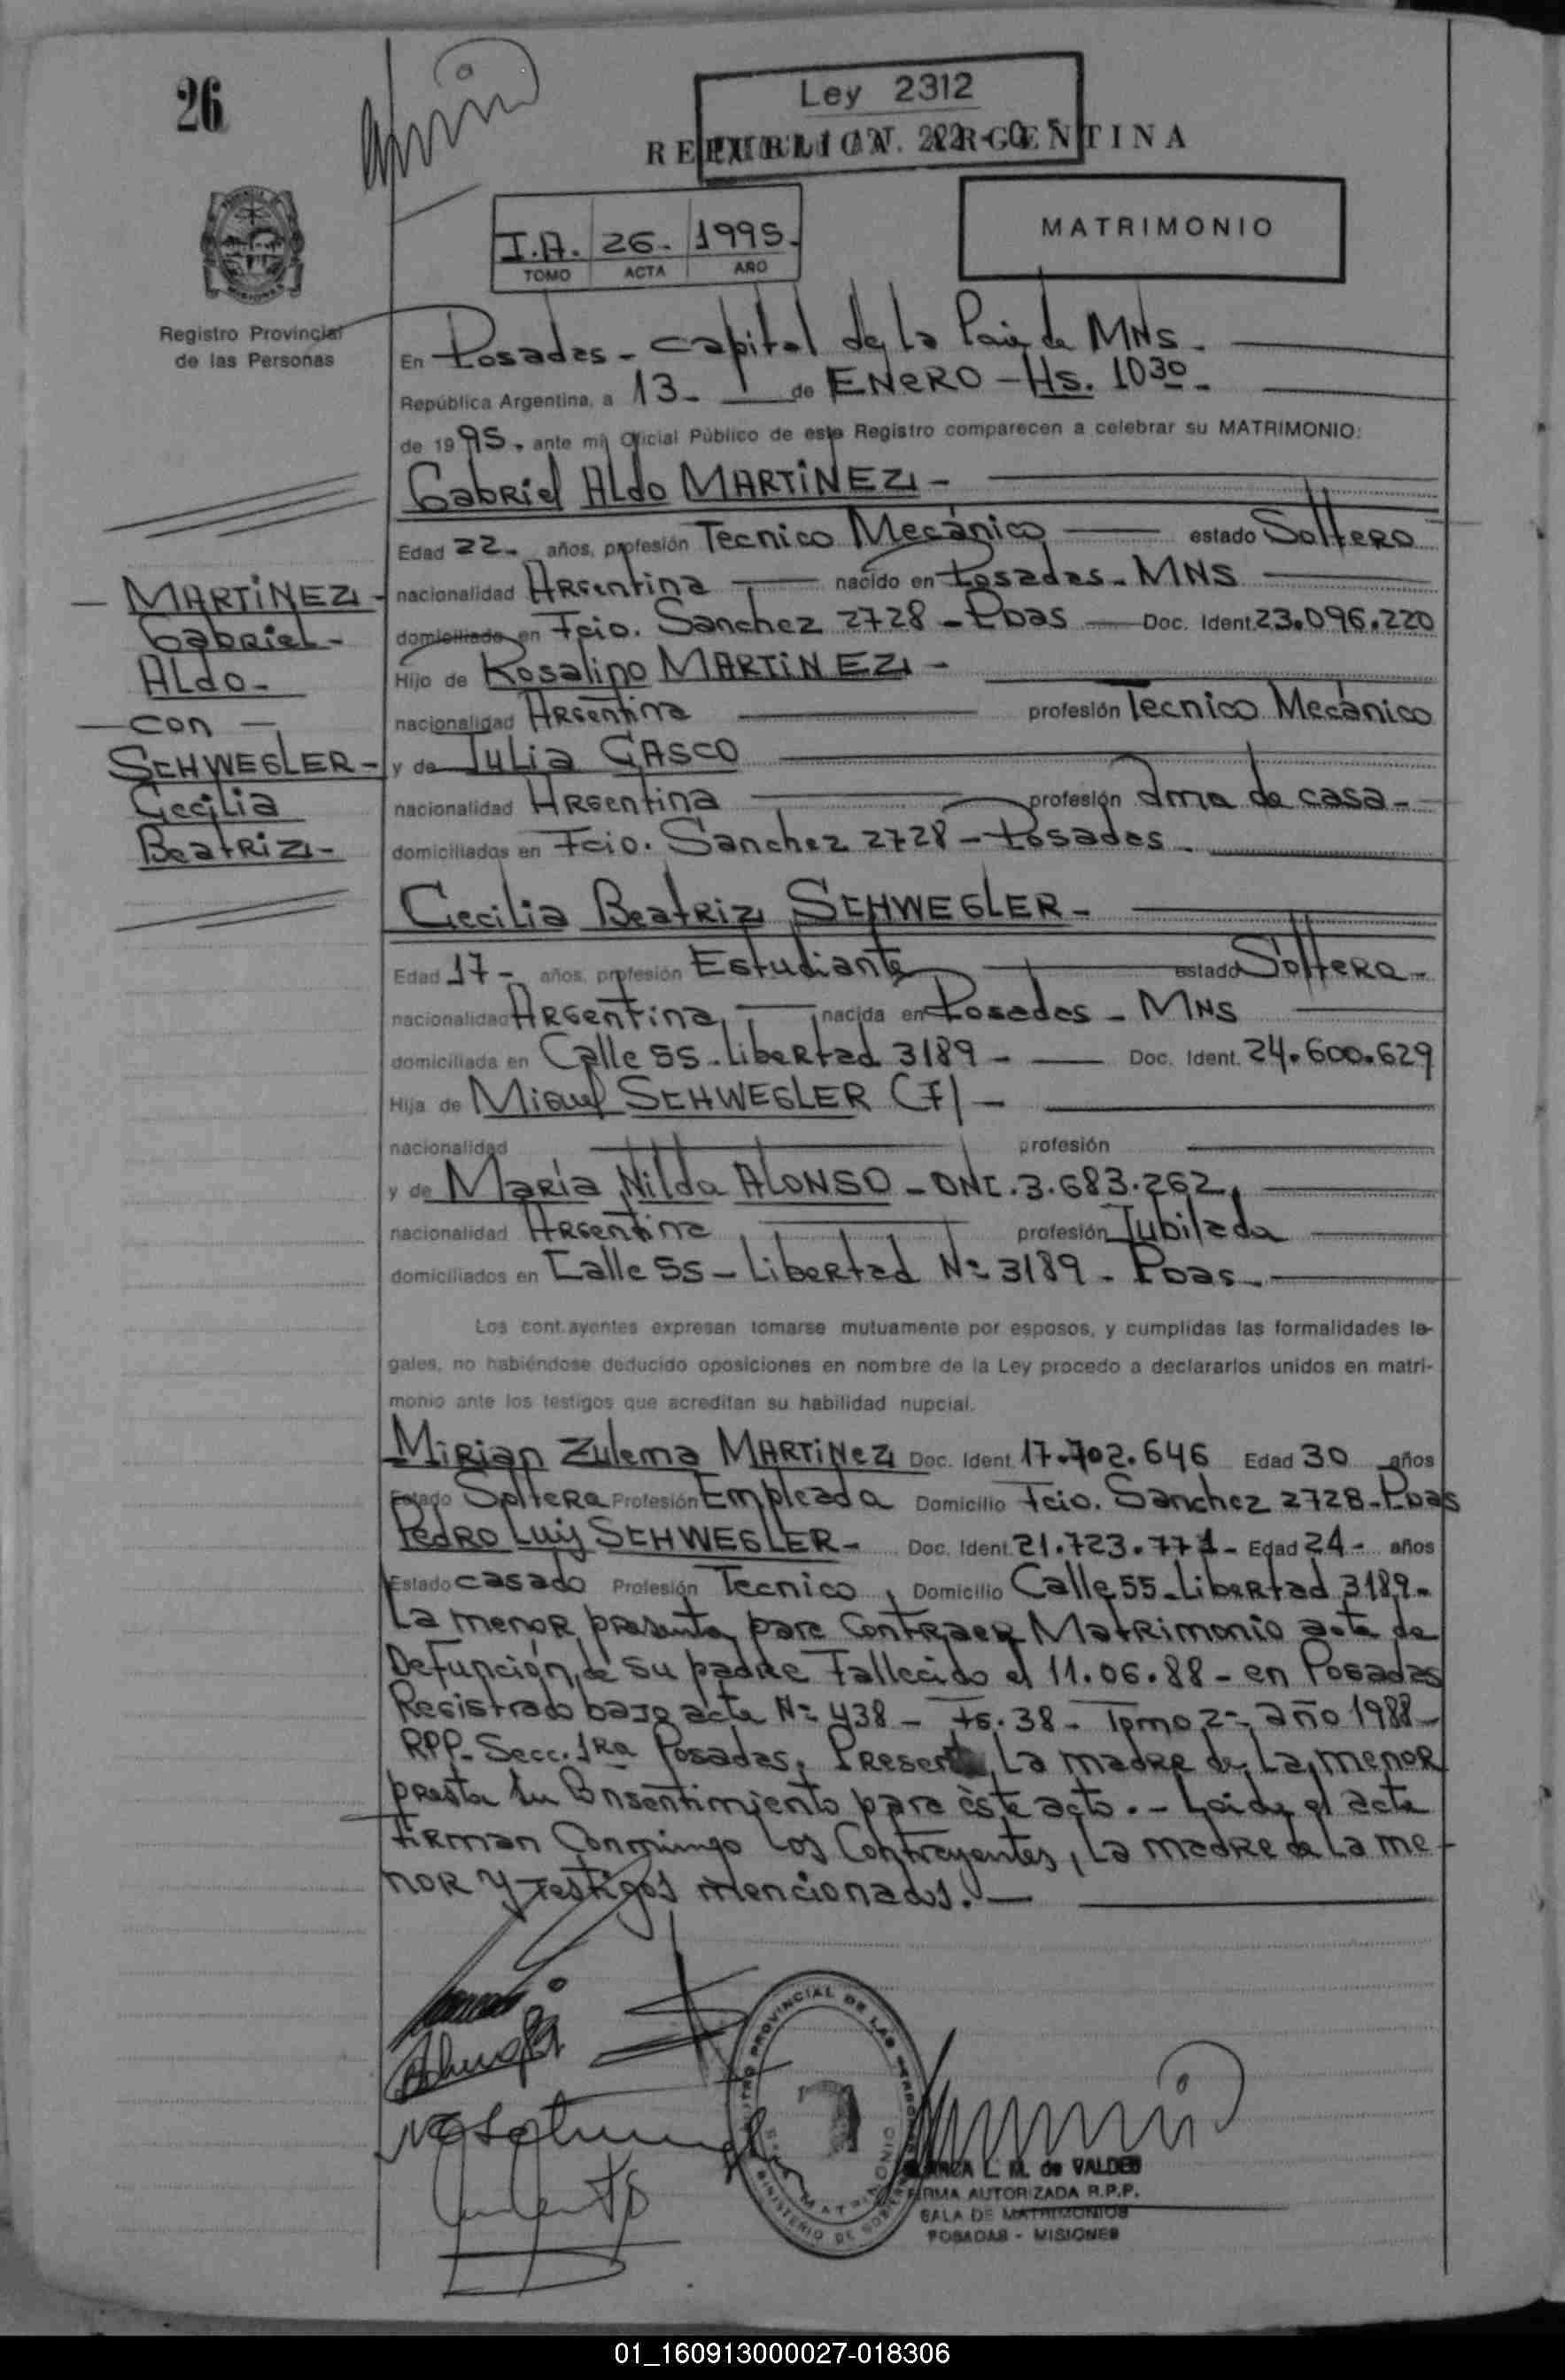 26
Ley 2312
REPUBLICA ARGENTINA
I.A. 26- 1995-
TOMO ACTA AÑO
MATRIMONIO
Registro Provincial
de las Personas
En Posadas - Capital de la de MNS.
República Argentina, a 13- de ENERO - Hs. 10 30-
de 1995. ante mi, Oficial Público de este Registro comparecen a celebrar su MATRIMONIO:
Gabriel Aldo MARTINEZ -
Edad 22- años, profesión Tecnico Mecánico estado Soltero
nacionalidad Argentina nacido en Posadas - MNS
domiciliado en Fcio. Sanchez 2728 - Pdas Doc. Ident. 23.096.220
Hijo de Rosalino MARTINEZ -
nacionalidad Argentina profesión Tecnico Mecánico
y de Julia GASCO
nacionalidad Argentina profesión Ama de casa -
domiciliados en Fcio. Sanchez 2728 - Posadas -
MARTINEZ -
Gabriel -
Aldo -
- con -
SCHWEGLER -
Cecilia
Beatriz -
Cecilia Beatriz SCHWEGLER -
Edad 17 - años, profesión Estudiante estado Soltera -
nacionalidad Argentina nacida en Posadas - MNS
domiciliada en Calle 55 - Libertad 3189 - Doc. Ident. 24.600.629
Hija de Miguel SCHWEGLER (F) -
nacionalidad profesión
y de María Nilda ALONSO - DNI. 3.683.262,
nacionalidad Argentina profesión Jubilada
domiciliados en Calle 55 - Libertad Nº 3189 - Pdas -
Los contrayentes expresan tomarse mutuamente por esposos, y cumplidas las formalidades le-
gales, no habiéndose deducido oposiciones en nombre de la Ley procedo a declararlos unidos en matri-
monio ante los testigos que acreditan su habilidad nupcial.
Mirian Zulema MARTINEZ Doc. Ident. 17.702.646 Edad 30 años
Estado Soltera Profesión Empleada Domicilio Fcio. Sanchez 2728 - Pdas
Pedro Luis SCHWEGLER - Doc. Ident. 21.723.771 - Edad 24 - años
Estado casado Profesión Tecnico Domicilio Calle 55 - Libertad 3189 -
La menor presenta para Contraer Matrimonio acta de
Defunción de su padre Fallecido el 11.06.88 - en Posadas
Registrado bajo acta Nº 438 - Fs. 38 - Tomo 2º, año 1988 -
RPP. Secc. 1Ra Posadas. Presente La madre de La menor
presta su Consentimiento para éste acto. - Leida el acta
Firman Conmingo los Contrayentes, La madre de La me-
nor y Testigos mencionados. -
REGISTRO PROVINCIAL DE LAS PERSONAS
MATRIMONIO
MINISTERIO DE GOBIERNO
L. M. de VALDES
FIRMA AUTORIZADA R.P.P.
SALA DE MATRIMONIOS
POSADAS - MISIONES
01_160913000027-018306